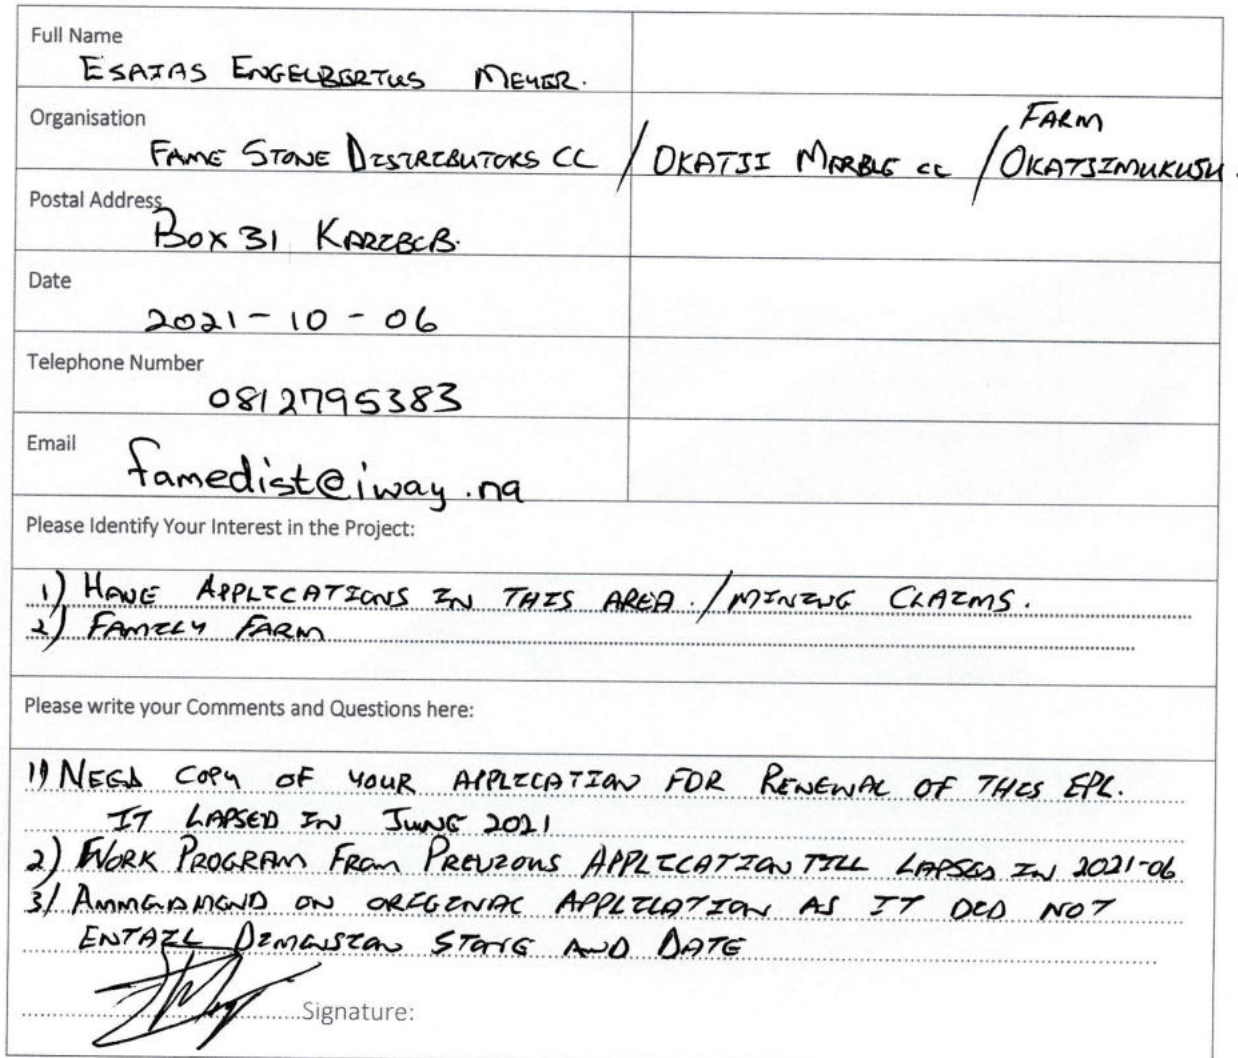 Full Name
ESAIAS ENGELBERTUS MEYER.
Organisation
FAME STONE DISTRIBUTORS CC / OKATJI MARBLE CC / FARM OKATJIMUKUJU.
Postal Address
BOX 31 KARIBIB.
Date
2021-10-06
Telephone Number
0812795383
Email
famedist@iway.na
Please Identify Your Interest in the Project:
1) HAVE APPLICATIONS IN THIS AREA. / MINING CLAIMS.
2) FAMILY FARM
Please write your Comments and Questions here:
1) NEED COPY OF YOUR APPLICATION FOR RENEWAL OF THIS EPL.
IT LAPSED IN JUNE 2021
2) WORK PROGRAM FROM PREVIOUS APPLICATION TILL LAPSED IN 2021-06
3) AMMENDMEND ON ORIGINAL APPLICATION AS IT DID NOT
ENTAIL DIMENSION STONE AND DATE
Signature: